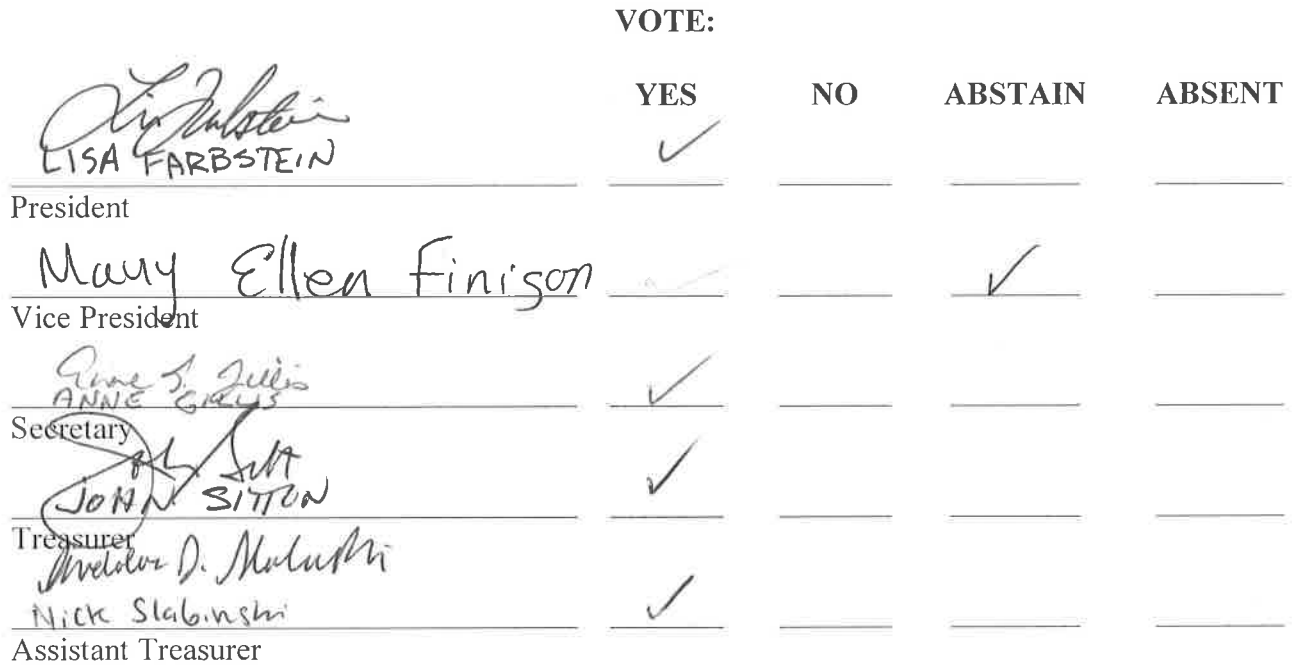 VOTE:
YES NO ABSTAIN ABSENT
LISA FARBSTEIN
President
Mary Ellen Finigan
Vice President
Anne S. Gillis
ANNE GILLIS
Secretary
JOHN SITTON
Treasurer
D.
Nick Slabinski
Assistant Treasurer